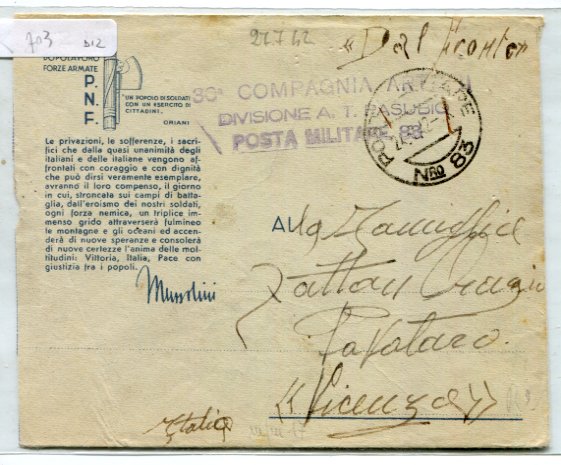 703 D12
27 7 42
« Dal fronte
DOPOLAVORO
FORZE ARMATE
P.
N.
F.
"UN POPOLO DI SOLDATI
CON UN ESERCITO DI
CITTADINI.
ORIANI
COMPAGNIA
DIVISIONE A. T. PASUBIO
POSTA MILITARE 83
POSTA MILITARE
NRO 83
Le privazioni, le sofferenze, i sacri-
fici che dalla quasi unanimità degli
italiani e delle italiane vengono af-
frontati con coraggio e con dignità
che può dirsi veramente esemplare,
avranno il loro compenso, il giorno
in cui, stroncata sui campi di batta-
glia, dall'eroismo dei nostri soldati,
ogni forza nemica, un triplice im-
menso grido attraverserà fulmineo
le montagne e gli oceani ed accen-
derà di nuove speranze e consolerà
di nuove certezze l'anima delle mol-
titudini: Vittoria, Italia, Pace con
giustizia tra i popoli.
Mussolini
Alla Famiglia
Zattan
« Vicenza »
Italia